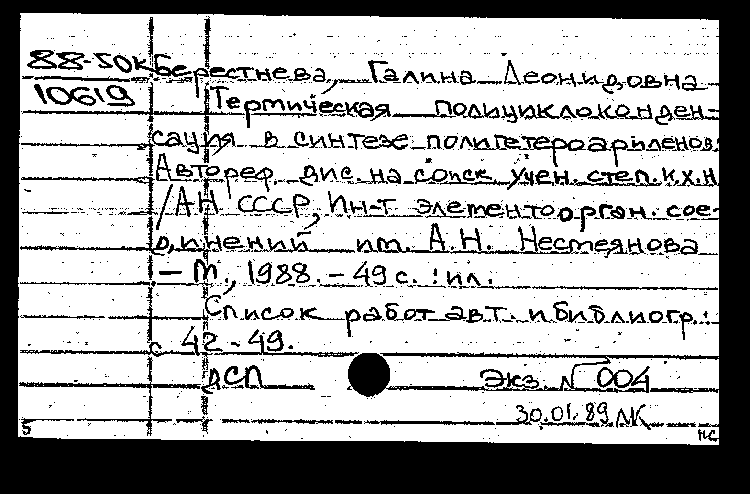 88-50к Берестнева, Галина Леонидовна
10619 Термическая полициклоконден-
сация в синтезе полигетероариленов:
Автореф. дис. на соиск. учен. степ. к.х.н
/АН СССР, Ин-т элементоорган. сое-
динений им. А.Н. Несмеянова
- М., 1988. - 49 с. : ил.
Список работ авт. и библиогр.:
с 42-49.
ДСП Экз. № 004
30.01.89 ЛК
5 НС